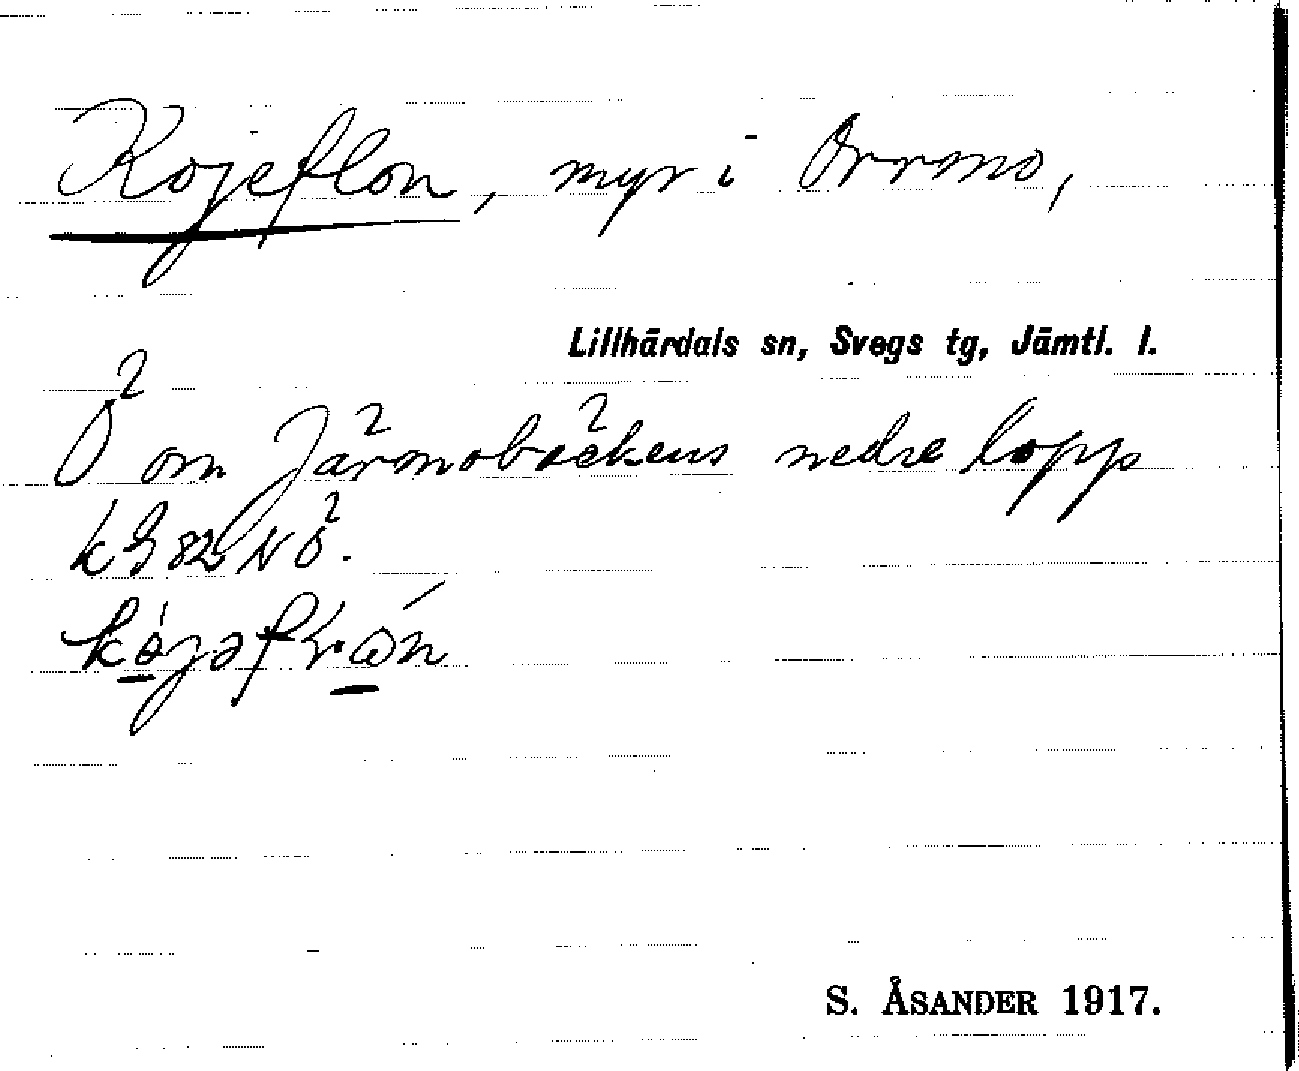 Kojeflon, myr i Orrmo,
Lillhärdals sn, Svegs tg, Jämtl. l.
Ö om Järmobäckens nedre lopp
k 3 82 N Ö.
S. ÅSANDER 1917.